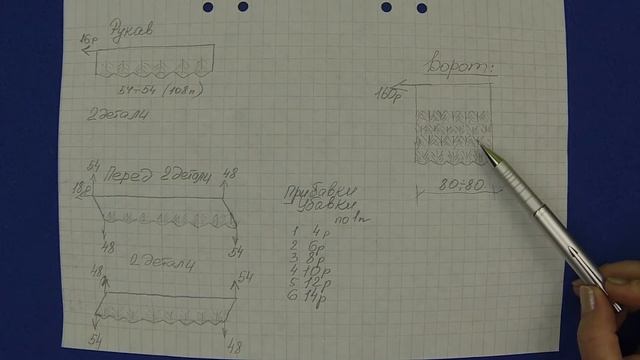 Рукав
16р
54÷54 (108п)
2 детали
54
Перед 2 детали
48
18р
48
54
2 детали
48
54
54
48
Прибавки
Убавки
по 1п
1 4р
2 6р
3 8р
4 10р
5 12р
6 14р
Ворот:
160р
80÷80